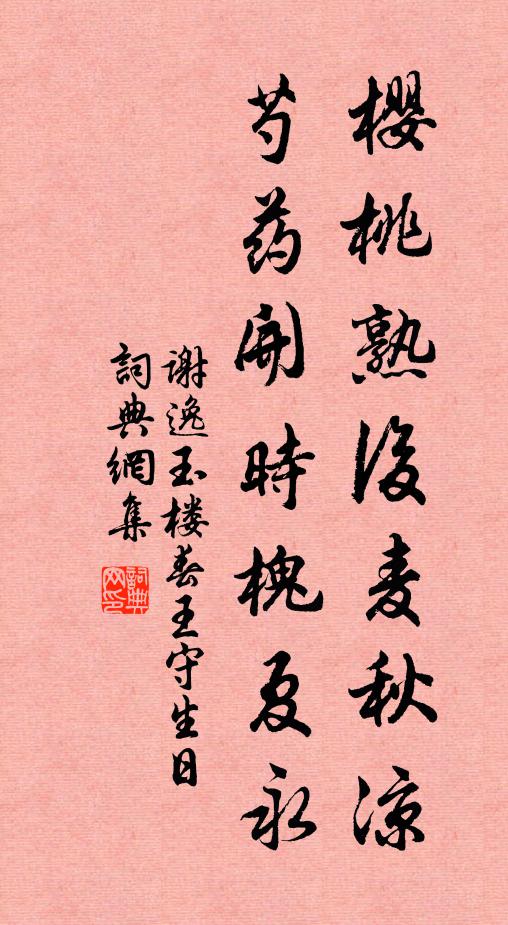 櫻桃熟後麦秋凉
芍药開時槐夏永
謝逸玉楼春王守生日
詞典網集
詞典网印